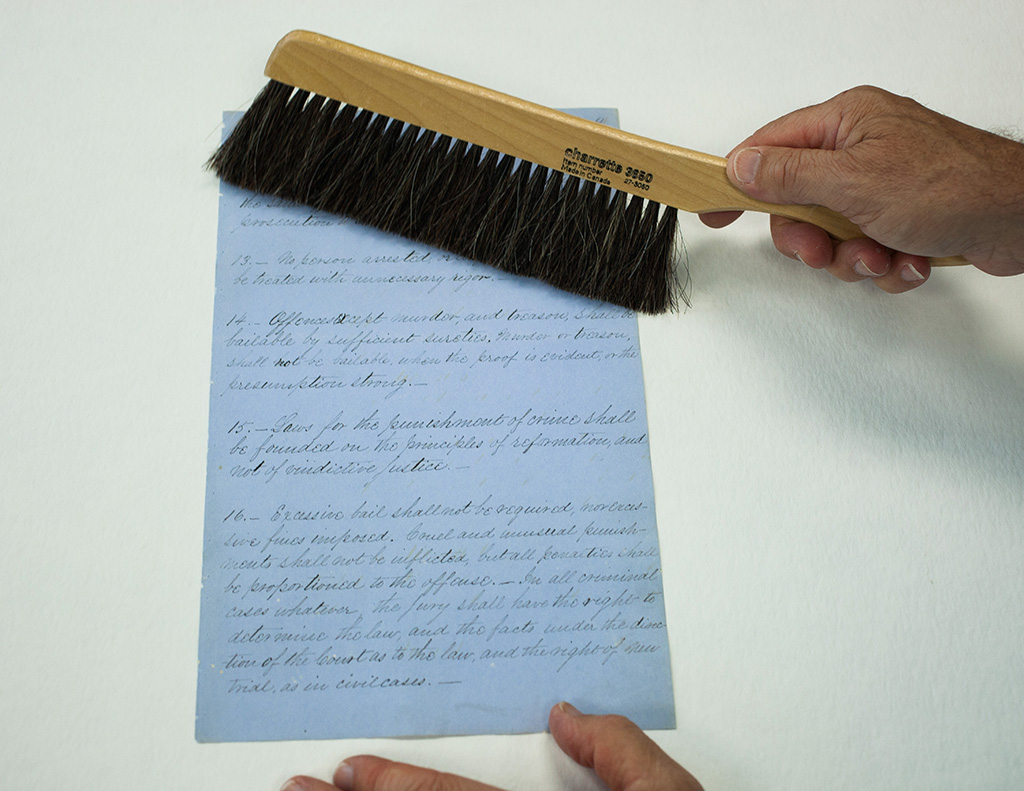 charrette 3650
Item number
Made in Canada 27-3050
the
prosecution
13.— No person arrested, or
be treated with unnecessary rigor.—
14.— Offences except murder, and treason, shall be
bailable by sufficient sureties. Murder or treason,
shall not be bailable, when the proof is evident, or the
presumption strong.—
15.— Laws for the punishment of crime shall
be founded on the principles of reformation, and
not of vindictive justice.—
16.— Excessive bail shall not be required, nor exces-
sive fines imposed. Cruel and unusual punish-
ments shall not be inflicted, but all penalties shall
be proportioned to the offense.— In all criminal
cases whatever, the jury shall have the right to
determine the law, and the facts under the direc-
tion of the Court as to the law, and the right of new
trial, as in civil cases.—